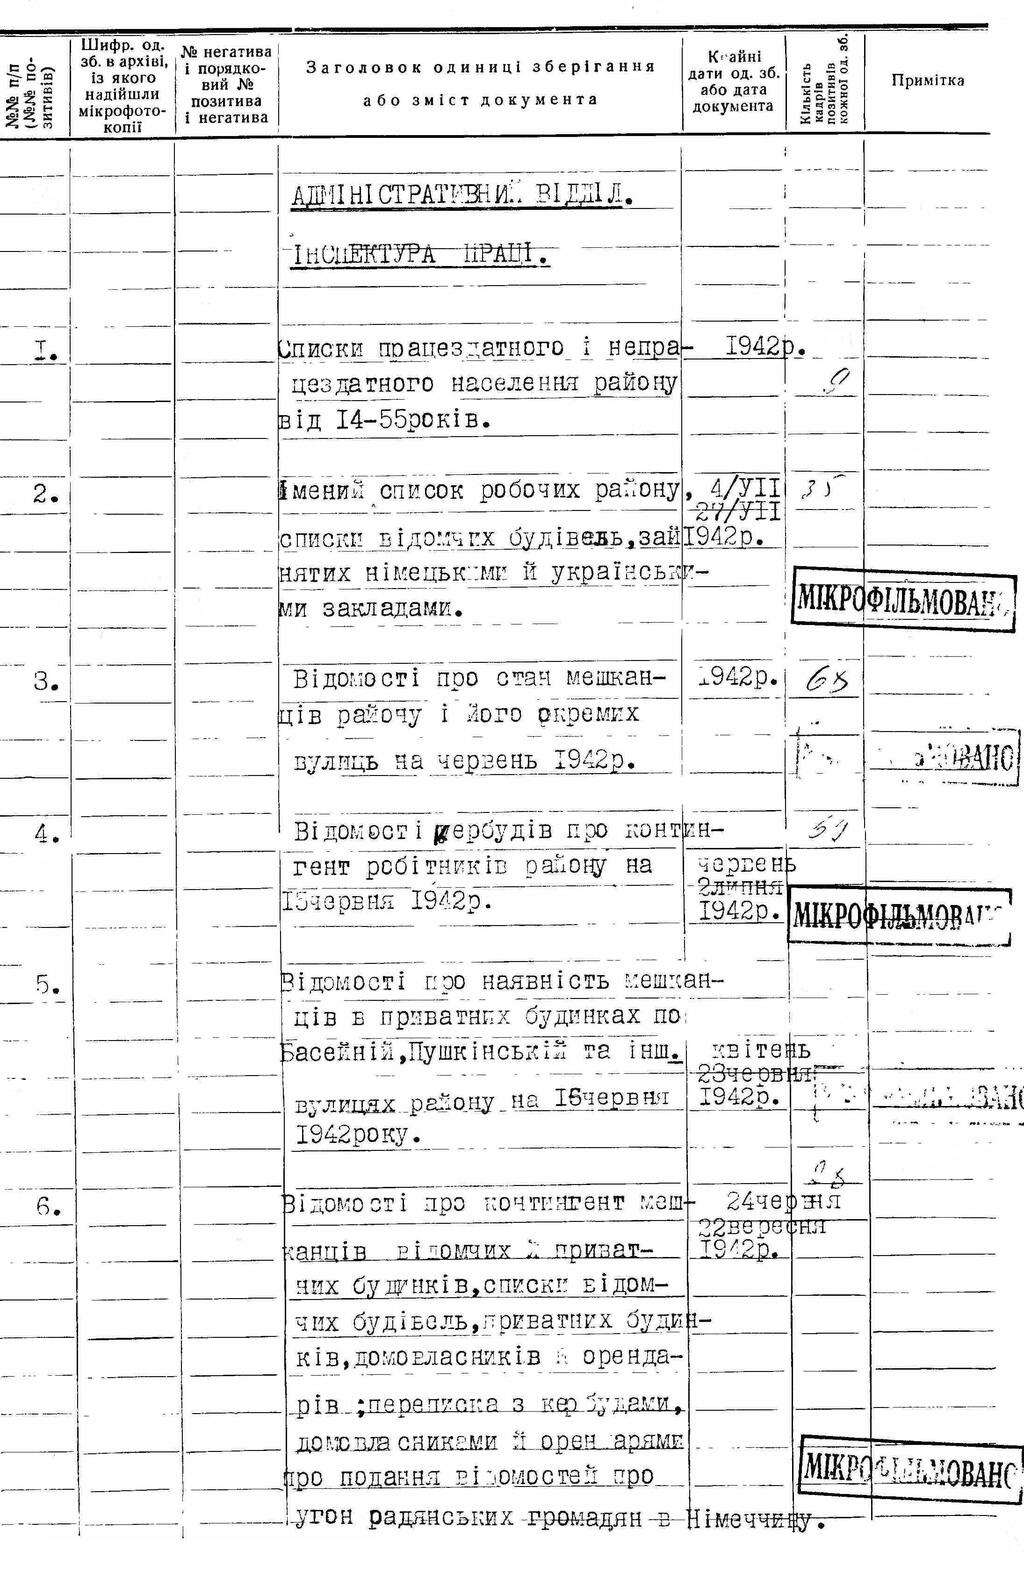 №№ п/п (№№ позитивів)
Шифр. од.
зб. в архіві,
із якого
надійшли
мікрофото-
копії
№ негатива
і порядко-
вий №
позитива
і негатива
Заголовок одиниці зберігання
або зміст документа
Крайні
дати од. зб.
або дата
документа
Кількість
кадрів
позитивів
кожної од. зб.
Примітка
АДМІНІСТРАТИВНИЙ ВІДДІЛ.
ІНСПЕКТУРА ПРАЦІ.
I. Списки працездатного і непра- I942р.
цездатного населення району 9
від I4-55років.
2. Імений список робочих району, 4/УII 35
27/УII
списки відомчих будівель,зай I942р.
нятих німецькими й українськи-
ми закладами.
МІКРОФІЛЬМОВАНО
3. Відомості про стан мешкан- I942р. 68
ців району і його окремих
вулиць на червень I942р.
МОВАНО
4. Відомості кербудів про контин- 59
гент робітників району на червень
2липня
I5червня I942р. I942р.
МІКРОФІЛЬМОВАНО
5. Відомості про наявність мешкан-
ців в приватних будинках по
Басейній,Пушкінській та інш. квітень
23червня
вулицях району на I6червня I942р.
ОВАНО
I942року.
28
6. Відомості про контингент меш- 24червня
22вересня
канців відомчих й приват- I942р.
них будинків,списки відом-
чих будівель,приватних будин-
ків,домовласників й оренда-
рів ;переписка з кербудами,
домовласниками й орендарями
про подання відомостей про
угон радянських громадян в Німеччину.
МІКРОФІЛЬМОВАНО